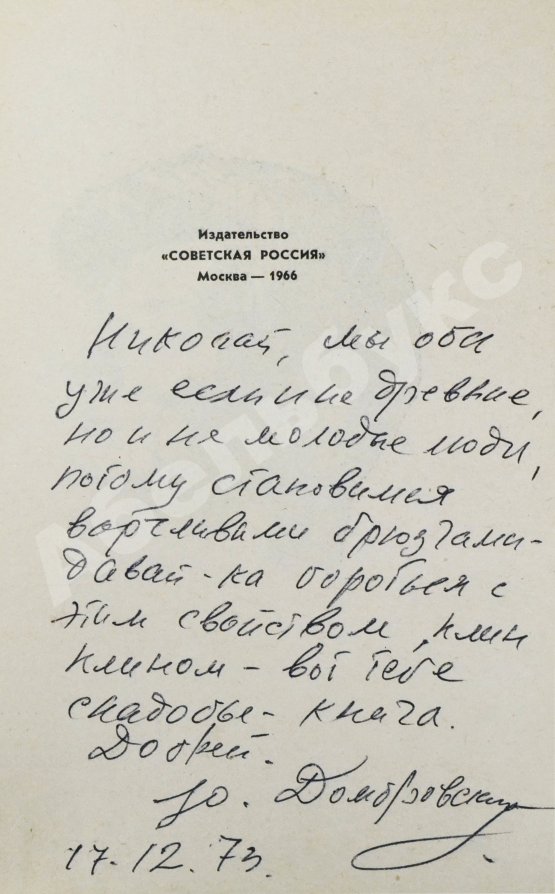 Издательство
«СОВЕТСКАЯ РОССИЯ»
Москва — 1966
Николай, мы оба
уже если и не древние,
но и не молодые люди,
потому становимся
ворчливыми брюзгами -
давай-ка бороться с
этим свойством, клин
клином - вот тебе
снадобье - книга.
Добрей.
Ю. Домбровский
17.12.73
Асельбукс